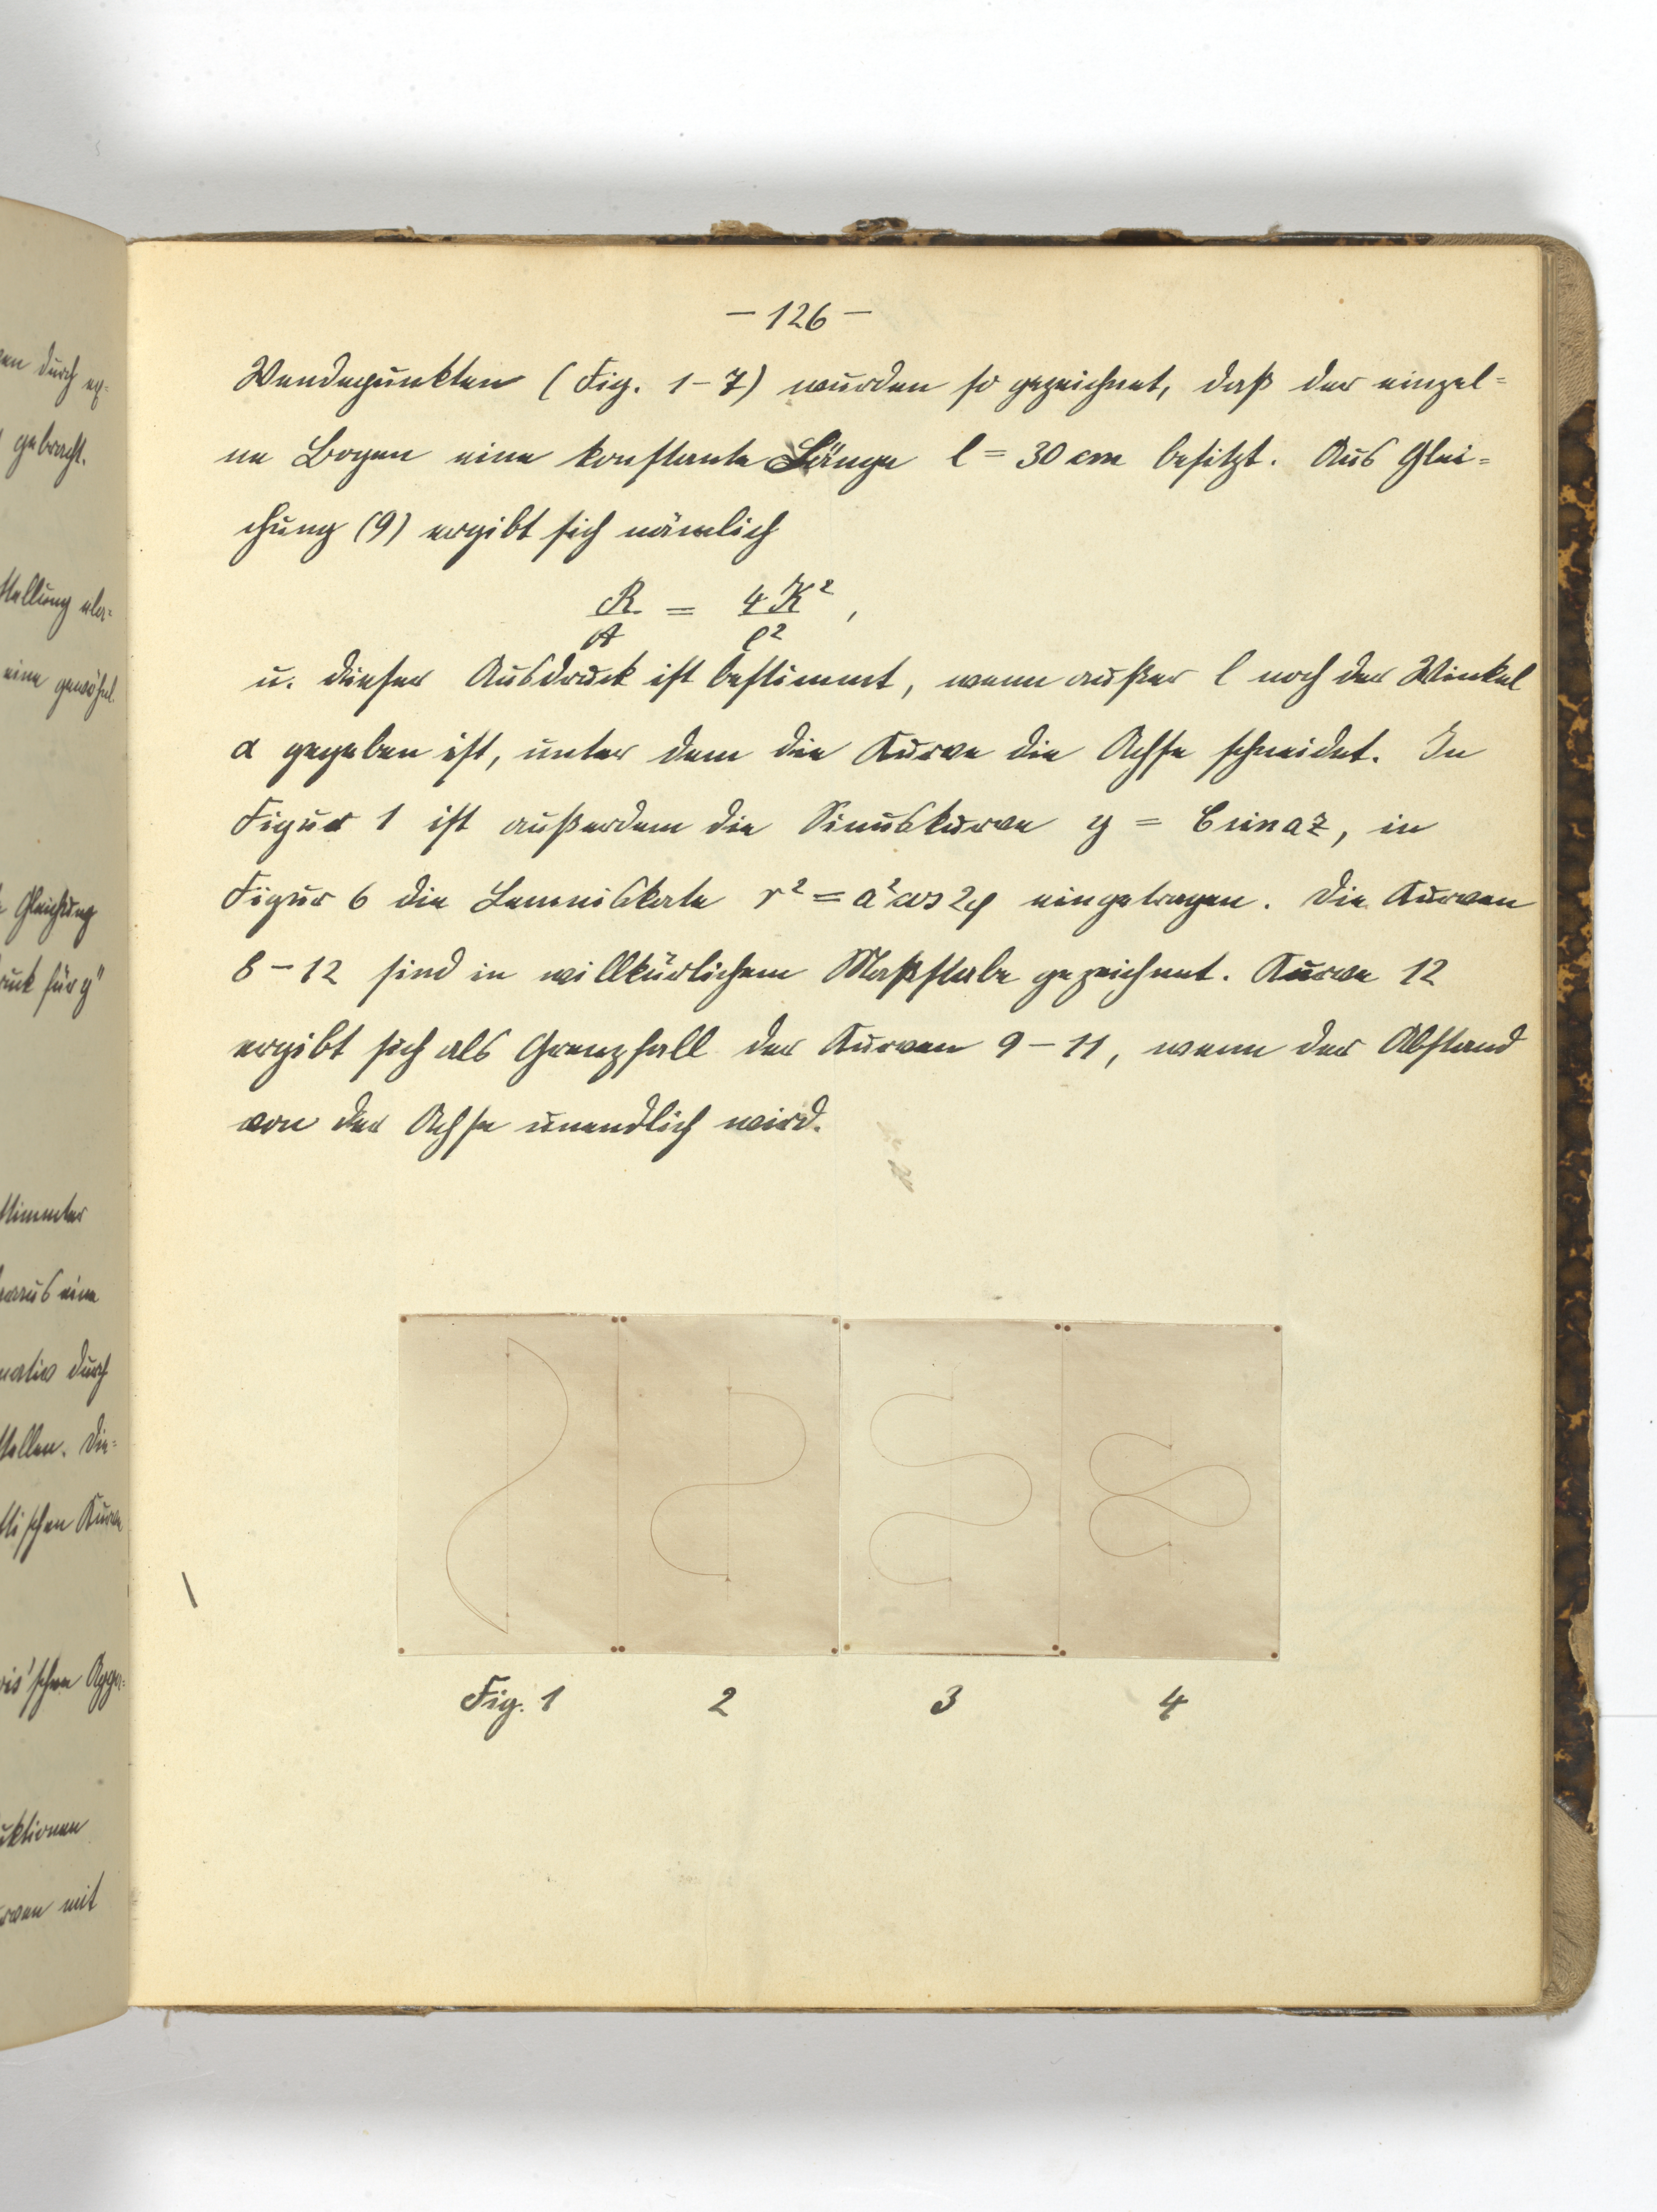 — 126 —
Wendepunkten (Fig. 1–7) wurden so gezeichnet, daß der einzel=
ne Bogen eine konstante Länge l = 30 cm besitzt. Aus Glei=
chung (9) ergibt sich nämlich
R/A = 4K²/l²,
u. dieser Ausdruck ist bestimmt, wenn außer l noch der Winkel
α gegeben ist, unter dem die Kurve die Achse schneidet. In
Figur 1 ist außerdem die Sinuskurve y = b sin az, in
Figur 6 die Lemniskate r² = a² cos 2φ eingetragen. Die Kurven
8–12 sind in willkürlichem Maßstabe gezeichnet. Kurve 12
ergibt sich als Grenzfall der Kurven 9–11, wenn der Abstand
von der Achse unendlich wird.
Fig. 1 2 3 4
en durch
gebracht.
stellung
eine
Gleichung
für y"
stimmter
aus eine
durch
stellen. Die=
schen
ktionen
mit